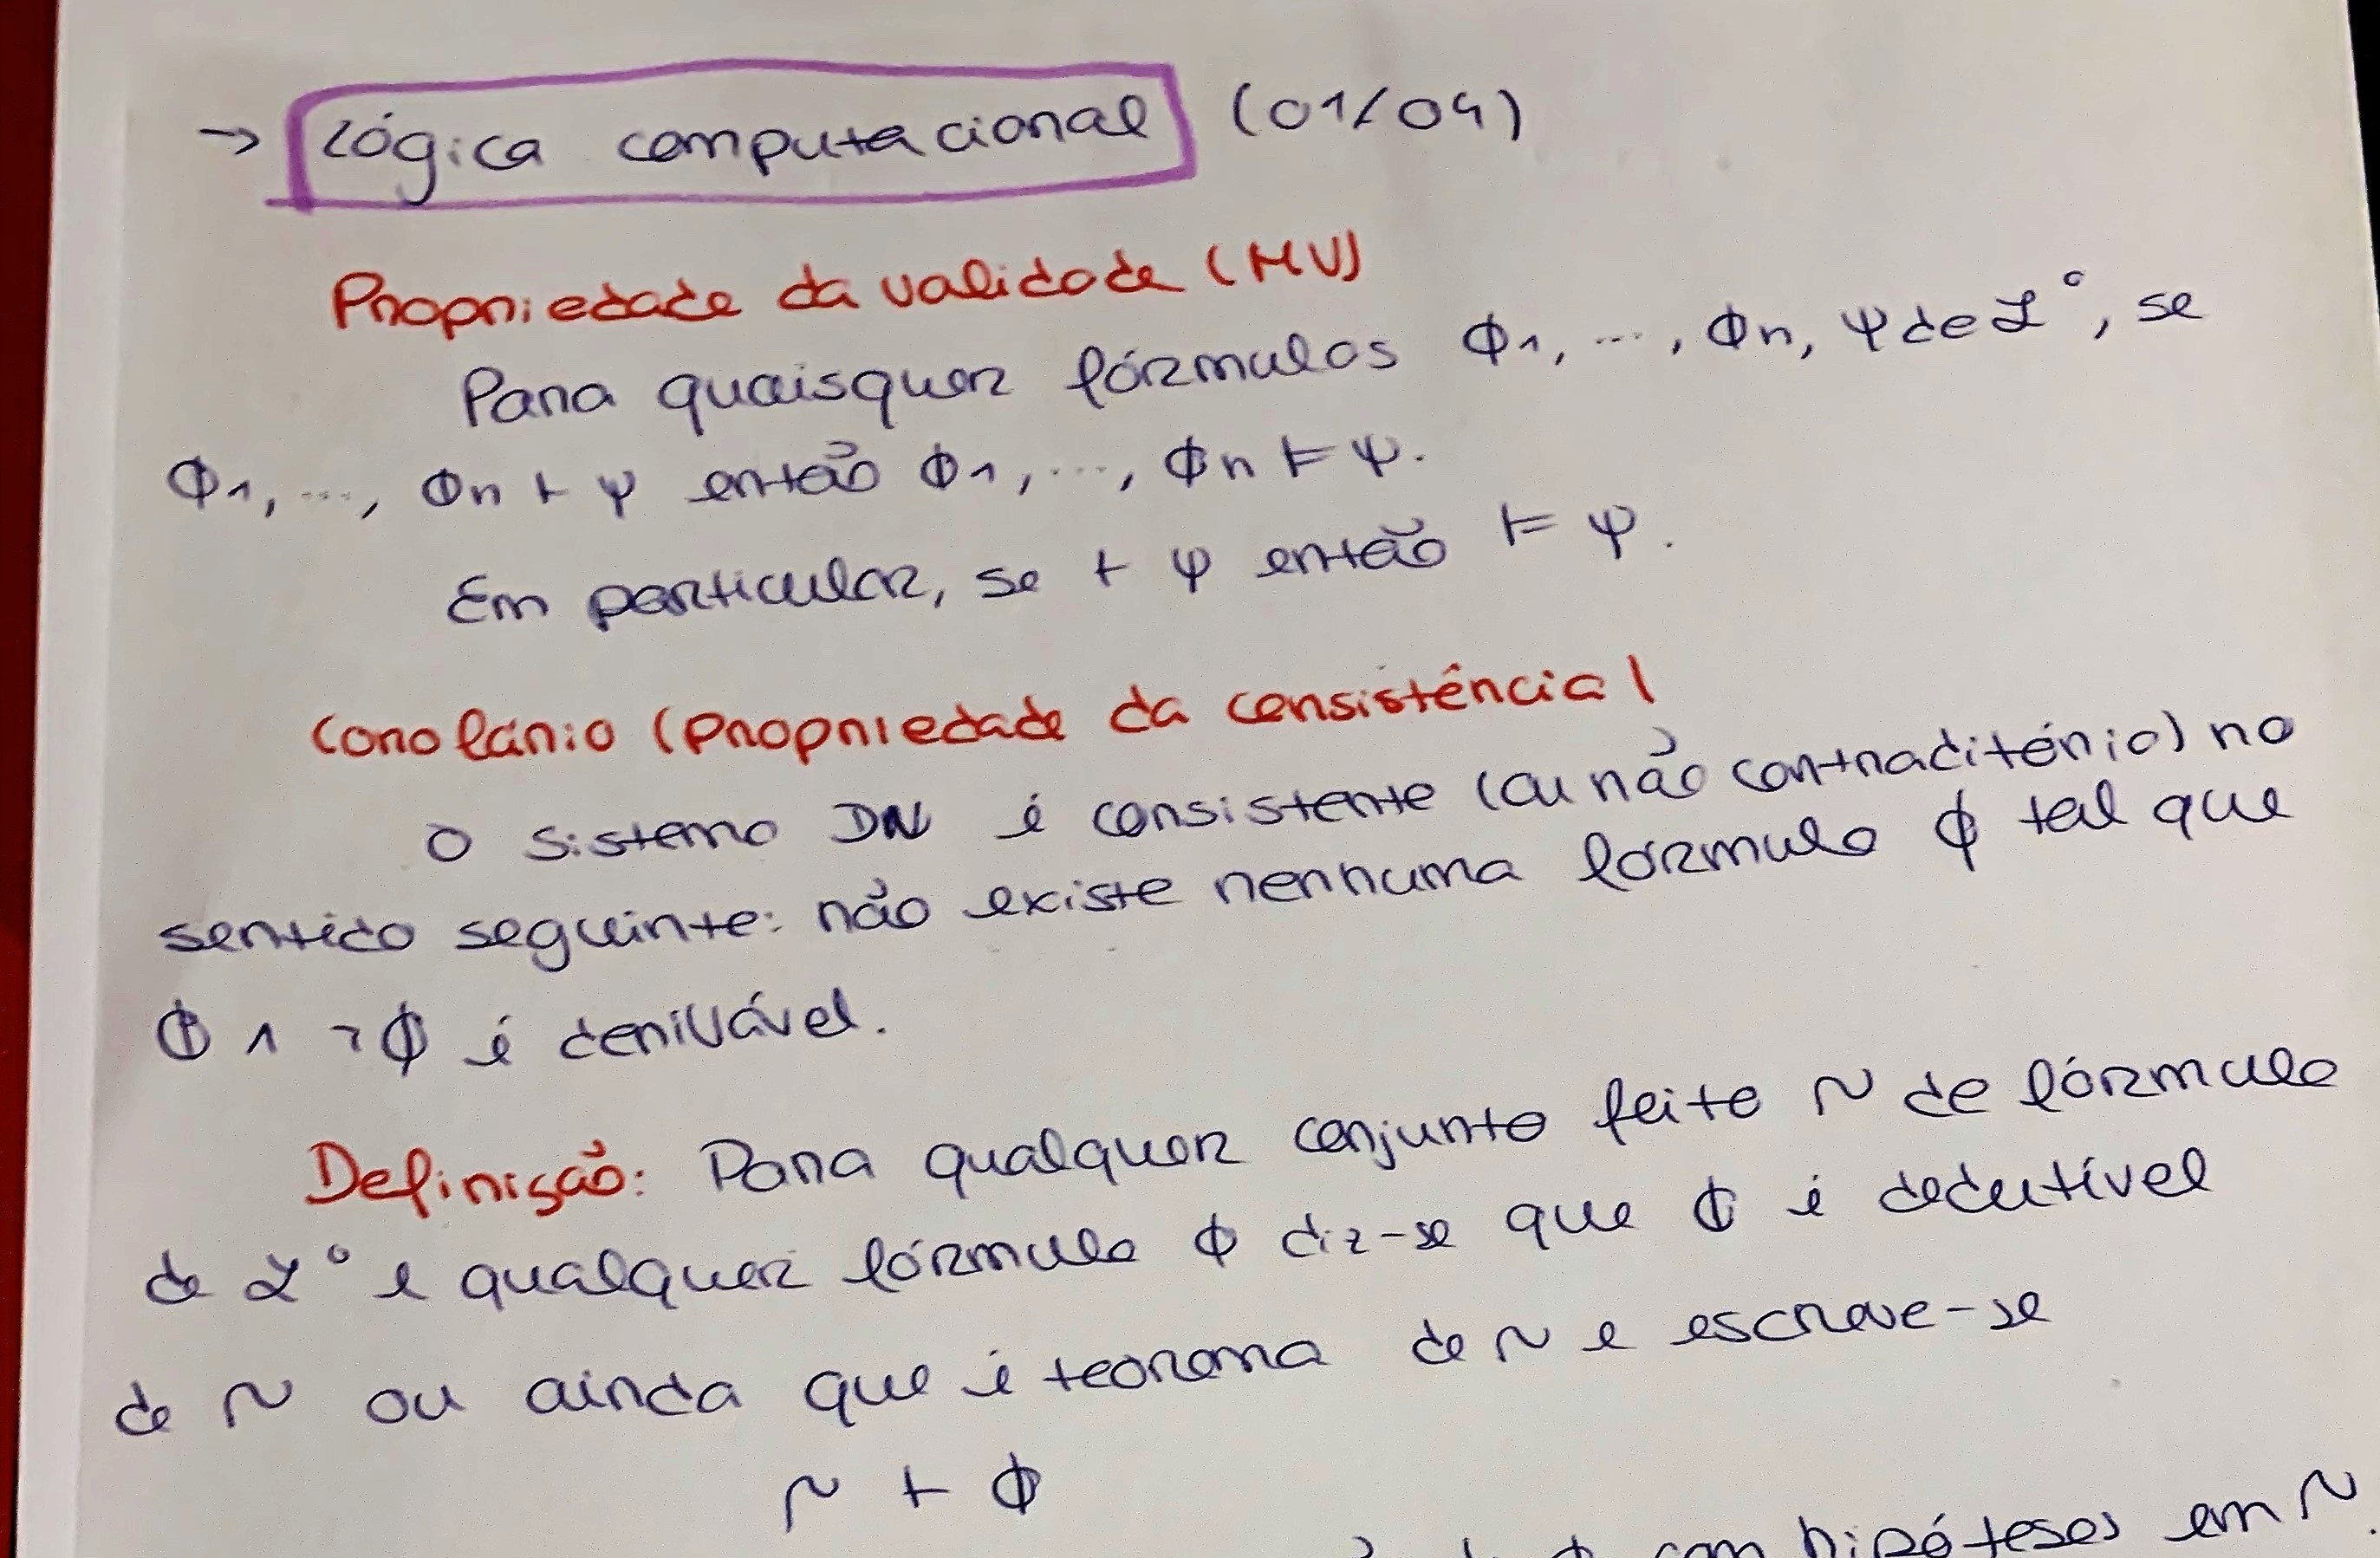 → Lógica computacional (01/04)
Propriedade da validade (MV)
Para quaisquer fórmulas ϕ1, ..., ϕn, ψ de ℒ°, se
ϕ1, ..., ϕn ⊢ ψ então ϕ1, ..., ϕn ⊨ ψ.
Em particular, se ⊢ ψ então ⊨ ψ.
Corolário (Propriedade da consistência)
O sistema DN é consistente (ou não contraditório) no
sentido seguinte: não existe nenhuma fórmula ϕ tal que
ϕ ∧ ¬ϕ é derivável.
Definição: Para qualquer conjunto feito ~ de fórmula
de ℒ° e qualquer fórmula ϕ diz-se que ϕ é dedutível
de ~ ou ainda que é teorema de ~ e escreve-se
~ ⊢ ϕ
com hipóteses em ~.